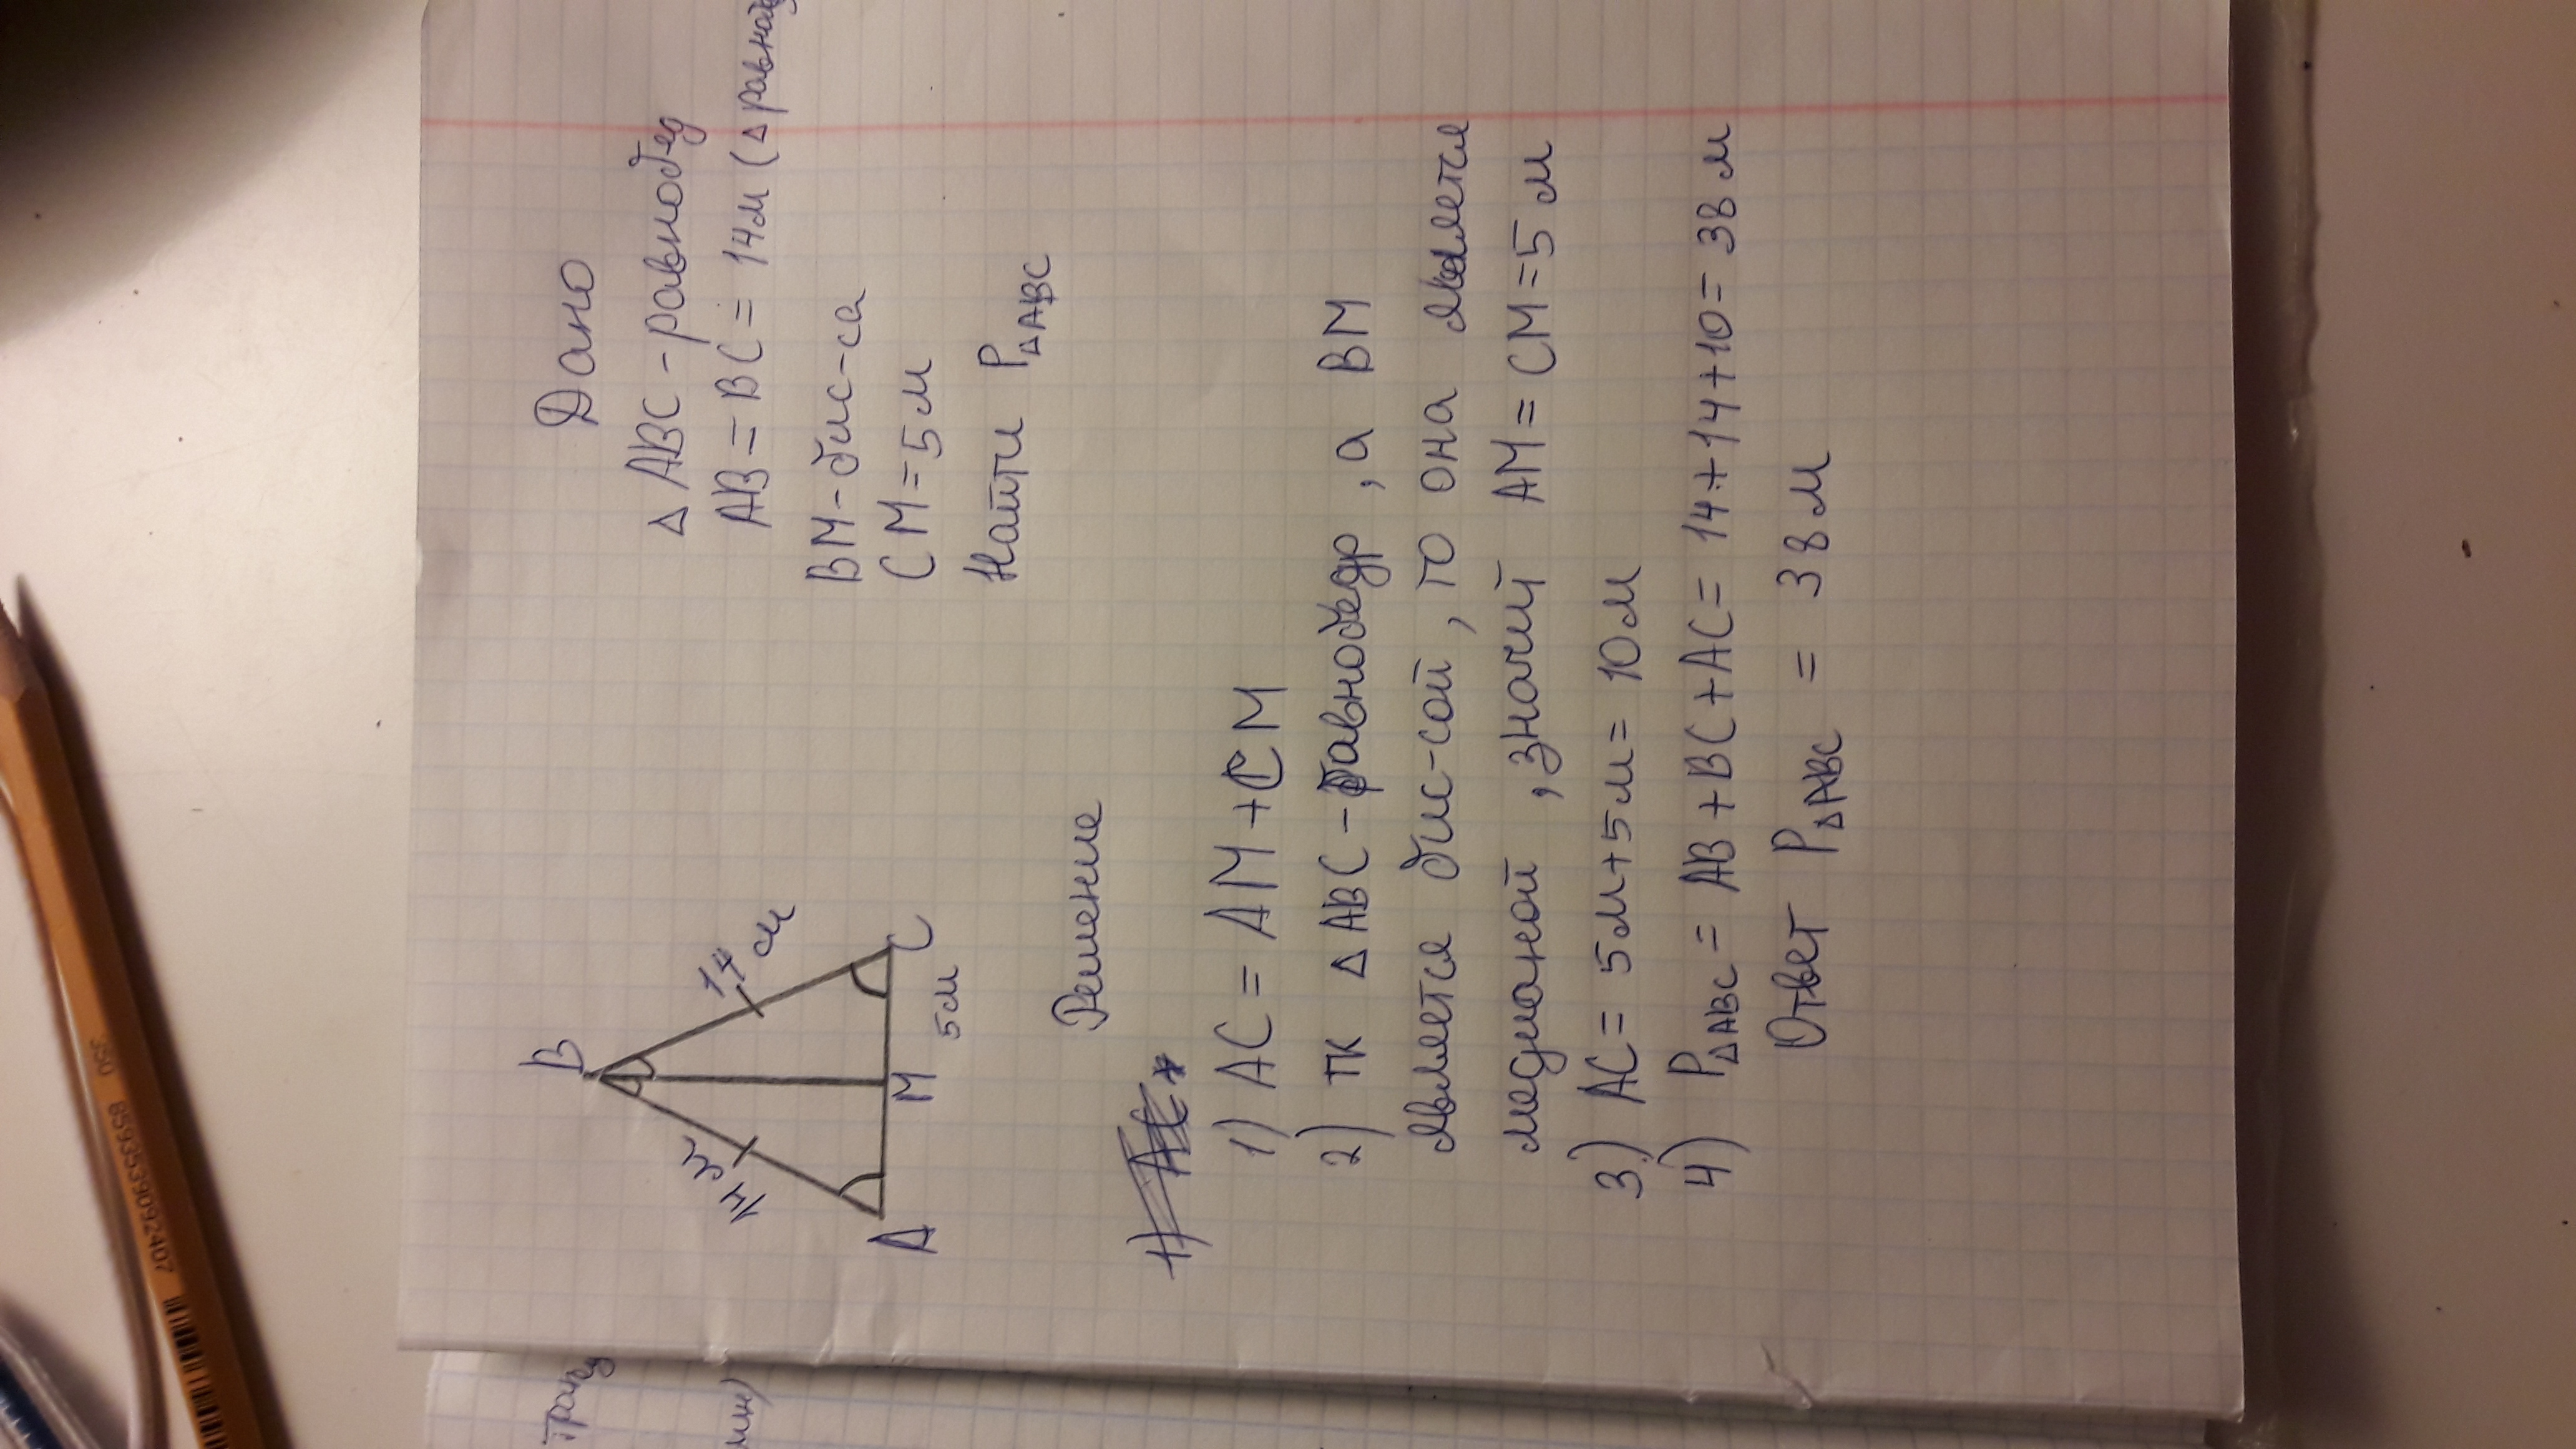 Дано
△ ABC - равнобед
AB = BC = 14м (△ равноб
BM - бис-са
CM = 5м
Найти P△ABC
B
14 см
A
M
5см
C
Решение
1) AC = AM + CM
2) тк △ ABC - равнобедр, а BM
является бис-сой, то она является
медианой, значит AM = CM = 5м
3) AC = 5м + 5м = 10м
4) P△ABC = AB + BC + AC = 14 + 14 + 10 = 38м
Ответ P△ABC = 38м
350 8593539092407